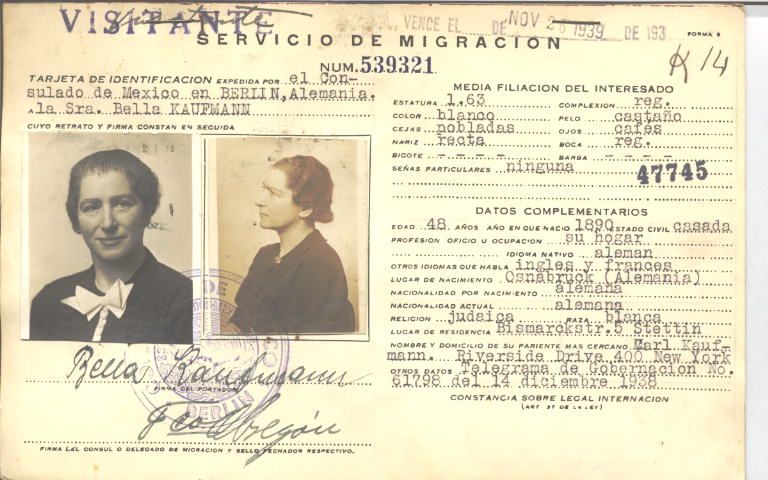 VISITANTE
VENCE EL DE NOV 26 1939 DE 193
SERVICIO DE MIGRACION
FORMA 8
K 14
NUM. 539321
TARJETA DE IDENTIFICACION EXPEDIDA POR el Con-
sulado de Mexico en BERLIN, Alemania.
a la Sra. Bella KAUFMANN
CUYO RETRATO Y FIRMA CONSTAN EN SEGUIDA
Bella Kaufmann
FIRMA DEL PORTADOR
BERLIN
Fco Obregón
FIRMA DEL CONSUL O DELEGADO DE MIGRACION Y SELLO FECHADOR RESPECTIVO.
MEDIA FILIACION DEL INTERESADO
ESTATURA 1.63 COMPLEXION reg.
COLOR blanco PELO castaño
CEJAS pobladas OJOS cafés
NARIZ recta BOCA reg.
BIGOTE - - - - BARBA - - - -
SEÑAS PARTICULARES ninguna
47745
DATOS COMPLEMENTARIOS
EDAD 48 AÑOS AÑO EN QUE NACIO 1890 ESTADO CIVIL casada
PROFESION OFICIO U OCUPACION su hogar
IDIOMA NATIVO aleman
OTROS IDIOMAS QUE HABLA ingles y frances
LUGAR DE NACIMIENTO Osnabruck (Alemania)
NACIONALIDAD POR NACIMIENTO alemana
NACIONALIDAD ACTUAL alemana
RELIGION judaica RAZA blanca
LUGAR DE RESIDENCIA Bismarckstr.5 Stettin
NOMBRE Y DOMICILIO DE SU PARIENTE MAS CERCANO Carl Kauf-
mann. Riverside Drive 400 New York
OTROS DATOS Telegrama de Gobernacion No.
61798 del 14 diciembre 1938
CONSTANCIA SOBRE LEGAL INTERNACION
(ART 57 DE LA LEY)